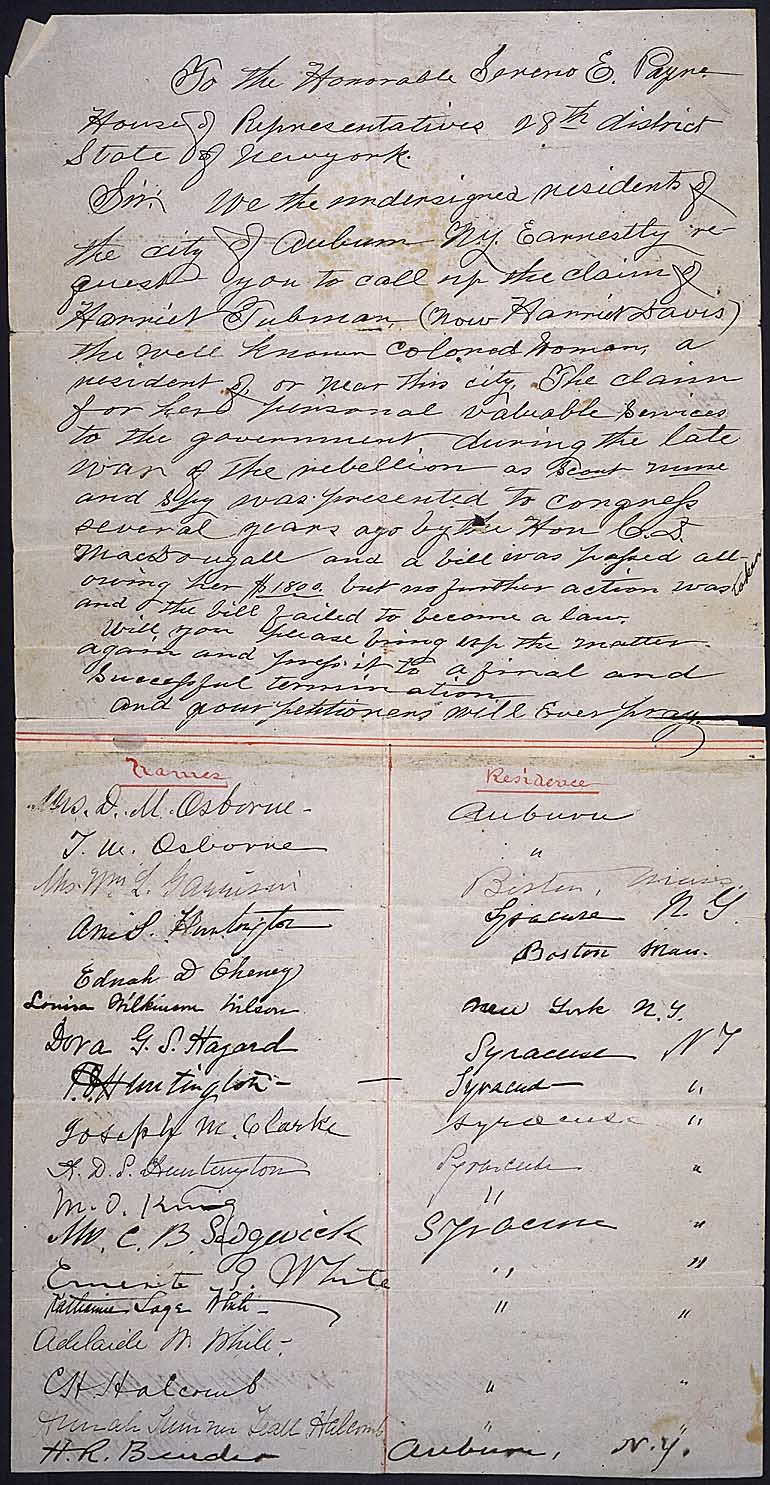 To the Honorable Sereno E. Payne
House of Representatives 28th district
State of Newyork.
Sir: We the undersigned residents of
the city of Auburn N.Y. Earnestly re-
quest you to call up the claim of
Harriet Tubman, (now Harriet Davis)
the well known colored woman, a
resident of, or near this city. The claim
for her personal valuable services
to the government during the late
war of the rebellion as scout nurse
and spy was presented to congress
several years ago by the Hon C. D.
MacDougall and a bill was passed all-
owing her $1800. but no further action was taken
and the bill failed to become a law.
Will you please bring up the matter
again and press it to a final and
successful termination
and your petitioners will Ever pray.
Names Residence
Mrs. D. M. Osborne - Auburn
T. M. Osborne "
Mrs. Wm L. Garrison Boston, Mass
Syracuse N Y.
Huntington
Ednah D Cheney Boston Mass.
Louisa Wilkinson Wilson New York N.Y.
Dora G. S. Hazard Syracuse N Y
Huntington - Syracuse "
Joseph M. Clarke Syracuse "
A. D. S. Huntington Syracuse "
M. O. King "
Mrs. C. B. Sedgwick Syracuse "
White " "
Katherine Sage White - " "
Adelaide W. White -
C H Halcomb " "
Hannah Sumner Teall Halcomb " "
H. R. Bender Auburn, N.Y.